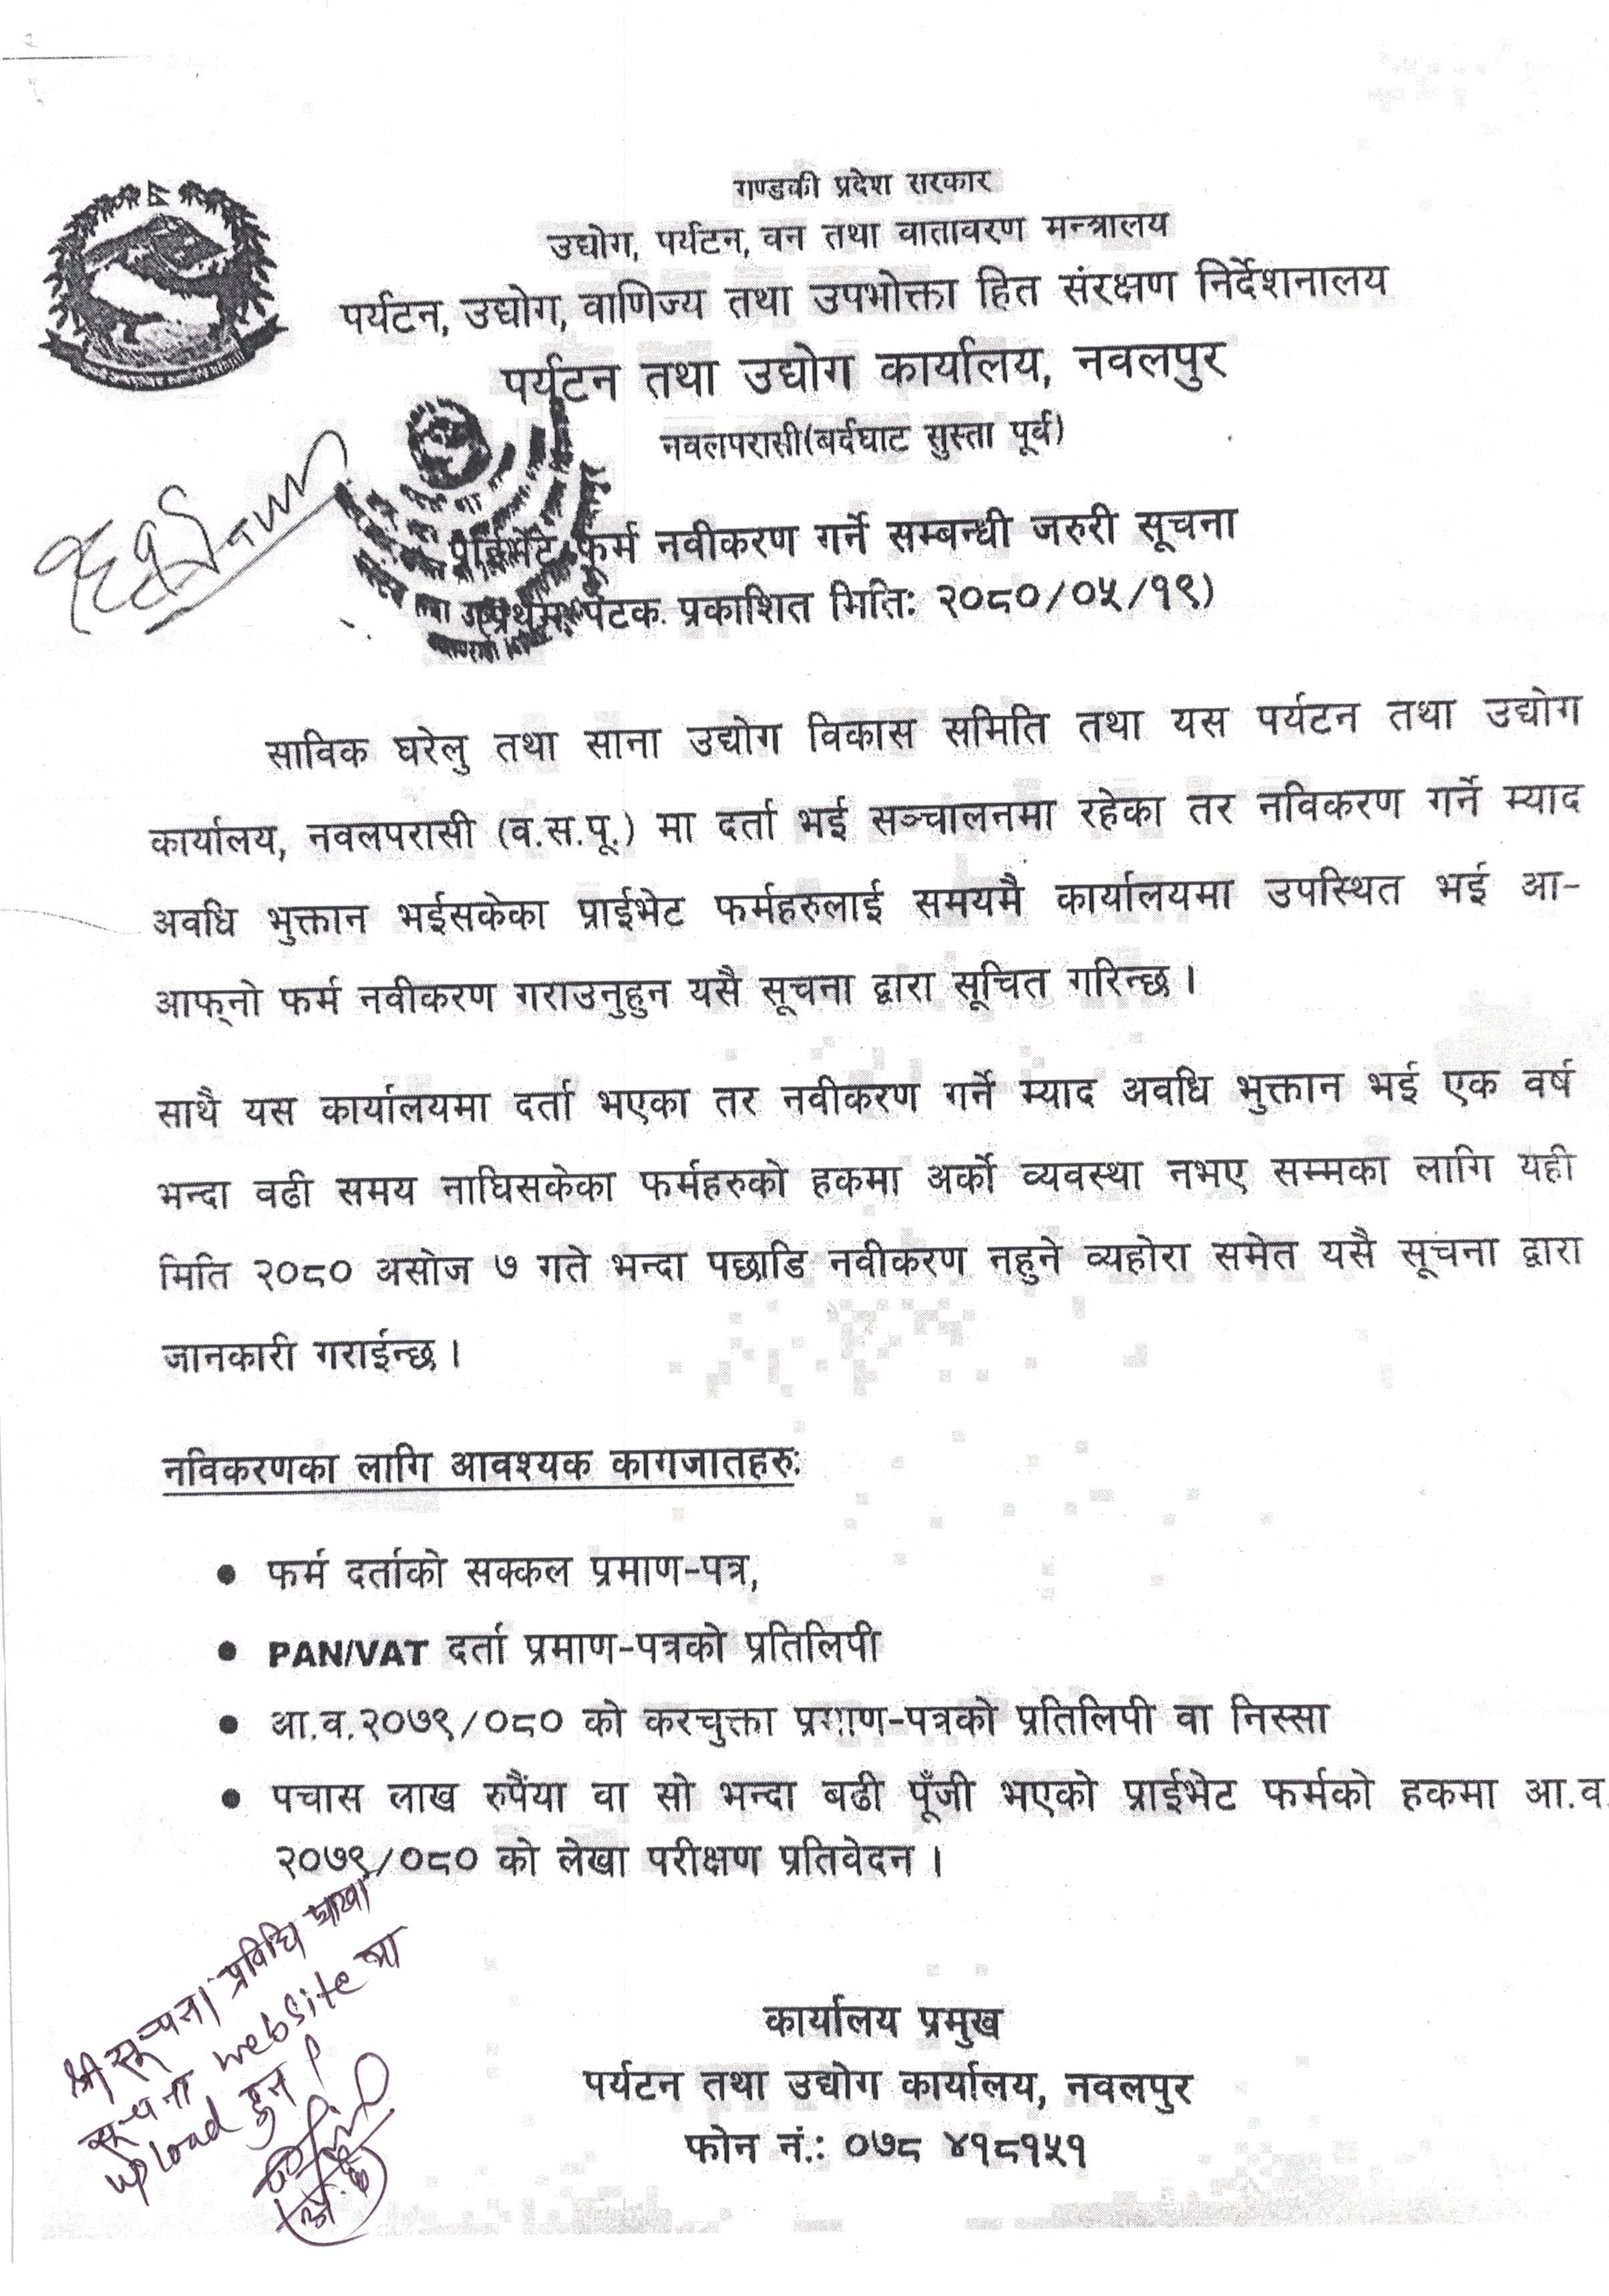 गण्डकी प्रदेश सरकार
उद्योग, पर्यटन, वन तथा वातावरण मन्त्रालय
पर्यटन, उद्योग, वाणिज्य तथा उपभोक्ता हित संरक्षण निर्देशनालय
पर्यटन तथा उद्योग कार्यालय, नवलपुर
नवलपरासी(बर्दघाट सुस्ता पूर्व)
प्राईभेट फर्म नवीकरण गर्ने सम्बन्धी जरुरी सूचना
(प्रथम पटक प्रकाशित मितिः २०८०/०५/१९)
साविक घरेलु तथा साना उद्योग विकास समिति तथा यस पर्यटन तथा उद्योग
कार्यालय, नवलपरासी (व.स.पू.) मा दर्ता भई सञ्चालनमा रहेका तर नविकरण गर्ने म्याद
अवधि भुक्तान भईसकेका प्राईभेट फर्महरुलाई समयमै कार्यालयमा उपस्थित भई आ-
आफ्‌नो फर्म नवीकरण गराउनुहुन यसै सूचना द्वारा सूचित गरिन्छ ।
साथै यस कार्यालयमा दर्ता भएका तर नवीकरण गर्ने म्याद अवधि भुक्तान भई एक वर्ष
भन्दा वढी समय नाघिसकेका फर्महरुको हकमा अर्को व्यवस्था नभए सम्मका लागि यही
मिति २०८० असोज ७ गते भन्दा पछाडि नवीकरण नहुने व्यहोरा समेत यसै सूचना द्वारा
जानकारी गराईन्छ ।
नविकरणका लागि आवश्यक कागजातहरुः
• फर्म दर्ताको सक्कल प्रमाण-पत्र,
• PAN/VAT दर्ता प्रमाण-पत्रको प्रतिलिपी
• आ.व.२०७९/०८० को करचुक्ता प्रमाण-पत्रको प्रतिलिपी वा निस्सा
• पचास लाख रुपैंया वा सो भन्दा बढी पूँजी भएको प्राईभेट फर्मको हकमा आ.व.
२०७९/०८० को लेखा परीक्षण प्रतिवेदन ।
श्री सूचना प्रविधि शाखा
सूचना website मा
upload हुन ।
कार्यालय प्रमुख
पर्यटन तथा उद्योग कार्यालय, नवलपुर
फोन नं.: ०७८ ४१८१५१